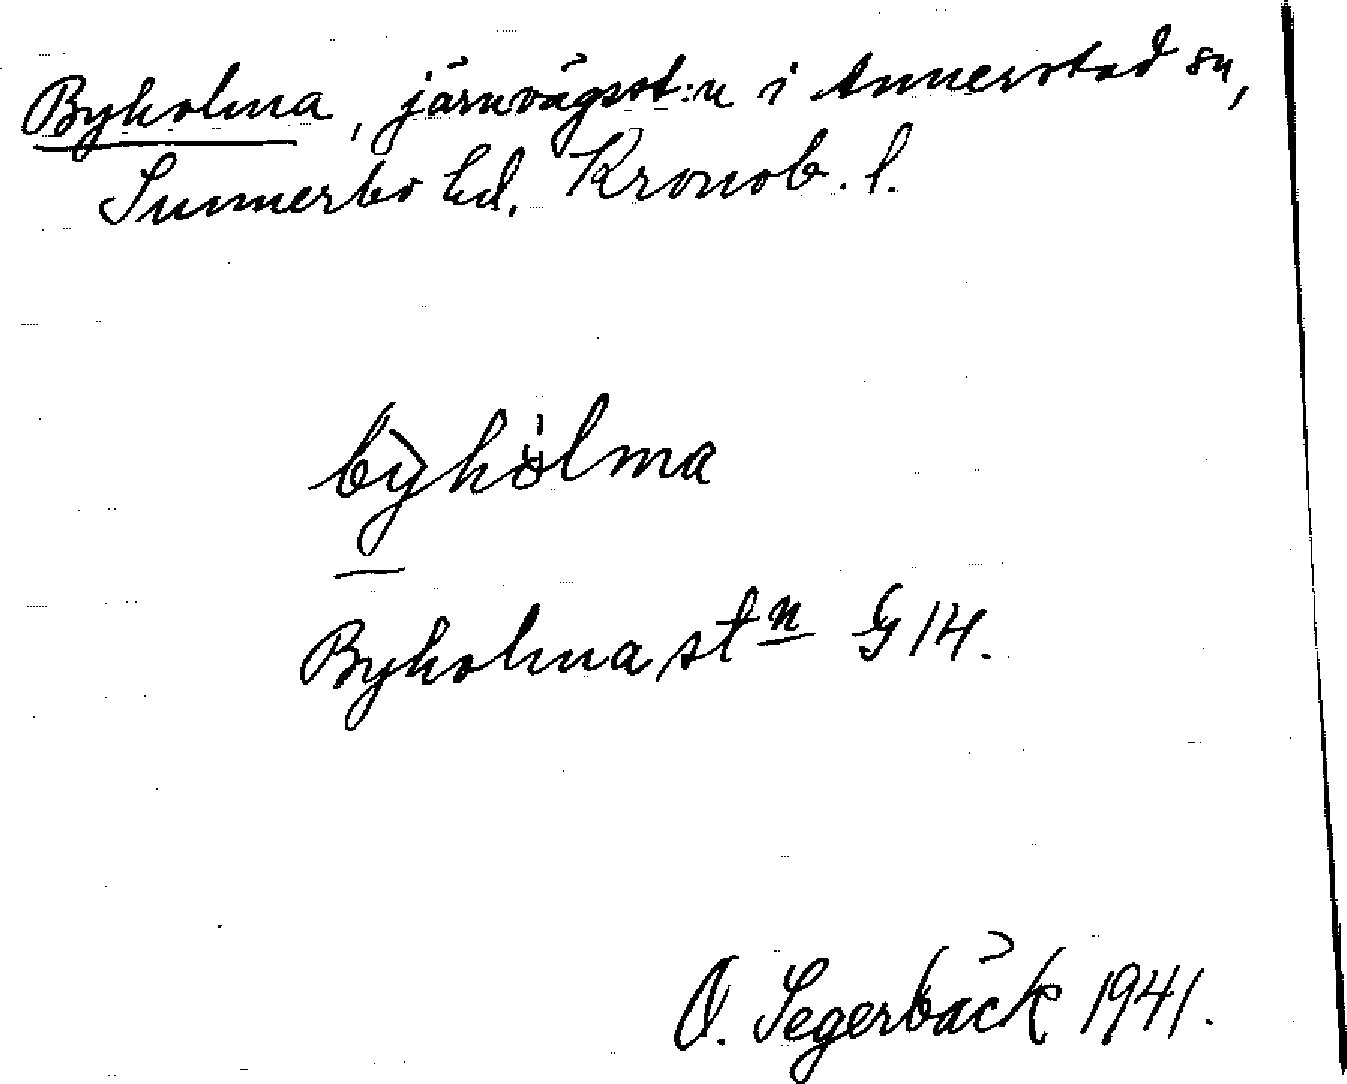 Byholma, järnvägsst:n i Annerstad sn,
Sunnerbo hd, Kronob. l.
bỳhòlma
Byholma stn G 14.
O. Segerbäck 1941.